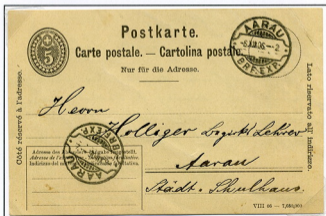 Postkarte.
Carte postale. — Cartolina postale.
Nur für die Adresse.
5
AARAU
BRF. EXP.
Côté réservé à l'adresse.
Lato riservato all'indirizzo.
Herrn
Holliger Bezirks Lehrer
Aarau
Städt. Schulhaus.
AARAU
BRF. EXP.